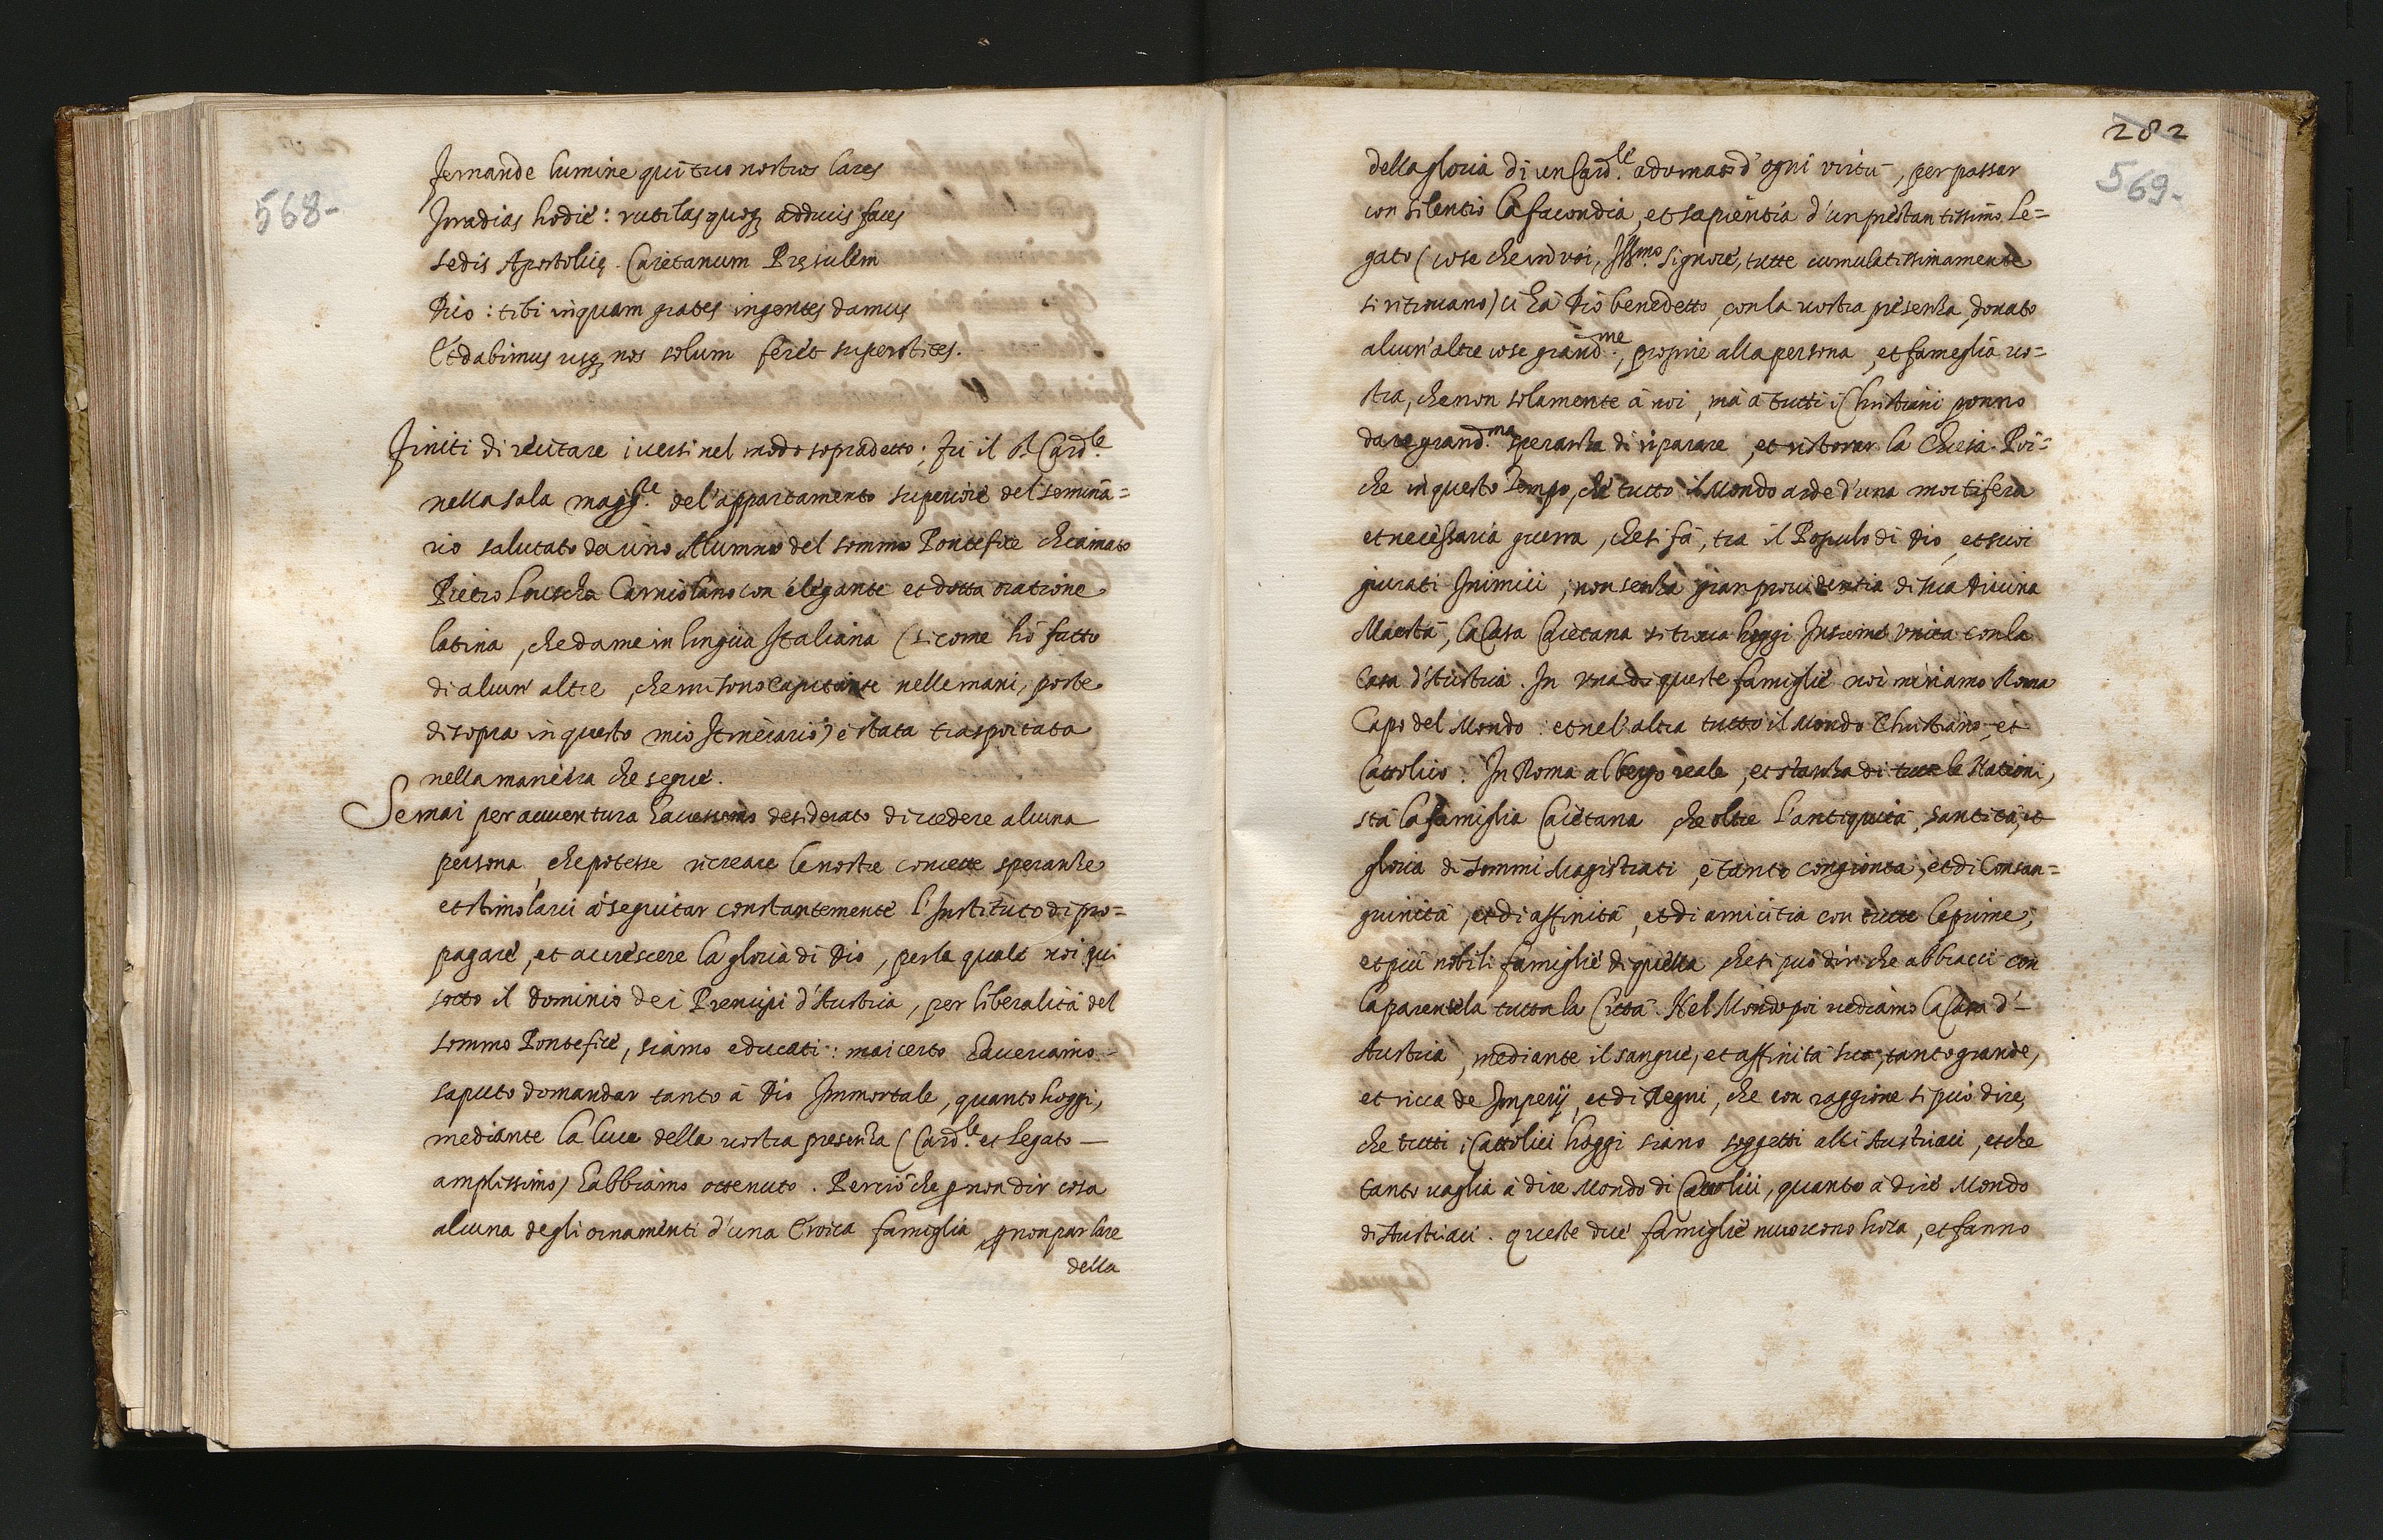 568-
Fernande lumine qui tuo nostros lares
Irradias hodie: rutilas quoq adducis faces
sedis Apostolicę. Caietanum Pręsulem
Dio: tibi inquam grates ingentes damus
Et dabimus usq nos solum feret superstites.
Finiti di recitare i versi nel modo sopradetto; fù il S.r Card.le
nella sala magg.re del'appartamento superiore del semina=
rio salutato da uno Alumno del sommo Pontefice chiamato
Pietro Carniolano con elegante et dotta oratione
latina, che da me in lingua Italiana (si come hò fatto
di alcun' altre, che mi sono capitate nelle mani, poste
di sopra in questo mio Itinerario) è stata trasportata
nella maniera che segue.
Se mai per avventura havessimo desiderato di vedere alcuna
persona, che potesse ricreare le nostre concette speranze
et stimolarci à seguitar constantemente l'Instituto di pro=
pagare, et accrescere la gloria di Dio, per la quale noi qui
sotto il dominio dei Prencipi d'Austria, per liberalità del
sommo Pontefice, siamo educati: mai certo haveriamo
saputo domandar tanto à Dio Immortale, quanto hoggi,
mediante la luce della vostra presenza (Card.le et Legato —
amplissimo) habbiamo ottenuto. Perciò che p non dir cosa
alcuna degli ornamenti d'una Eroica famiglia p non parlare
della
282
569-
della gloria di un Card.le adornato d'ogni virtù, per passar
con silentio la facondia, et sapientia d'un prestantissimo Le=
gato (cose che in voi, Ill.mo Signore, tutte cumulatissimamente
si ritrovano) ci hà Dio benedetto, con la vostra presenza, donato
alcun'altre cose grand.me, proprie alla persona, et fameglia vo=
stra, che non solamente à noi, mà à tutti i Christiani ponno
dare grand.ma speranza di riparare, et ristorar la Chiesa. Poi=
che in questo tempo, che tutto il Mondo arde d'una mortifera
et necessaria guerra, che si fà, tra il Populo di Dio, et suoi
giurati Inimici, non senza gran providentia di sua Divina
Maestà, la Casa Caietana si trova hoggi Insieme unita con la
Casa d'Austria. In una di queste famiglie noi miriamo Roma
Capo del Mondo: et nel'altra tutto il Mondo Christiano, et
Cattolico. In Roma albergo reale, et stanza di tutte le Nationi,
stà la famiglia Caietana, che oltre l'antiquità, santità, et
gloria di sommi Magistrati, è tanto congionta, et di Consan=
guinità, et di affinità, et di amicitia con tutte le prime,
et più nobili famiglie di quella, che si può dir che abbracci con
la parentela tutta la Città. Nel Mondo poi vediamo la Casa d'—
Austria, mediante il sangue, et affinità sua, tanto grande,
et ricca de Imperij, et di Regni, che con raggione si può dire,
che tutti i Cattolici hoggi siano soggetti alli Austriaci, et che
tanto vaglia à dire Mondo di Cattolici, quanto à dire Mondo
di Austriaci. queste due famiglie muovono hora, et fanno